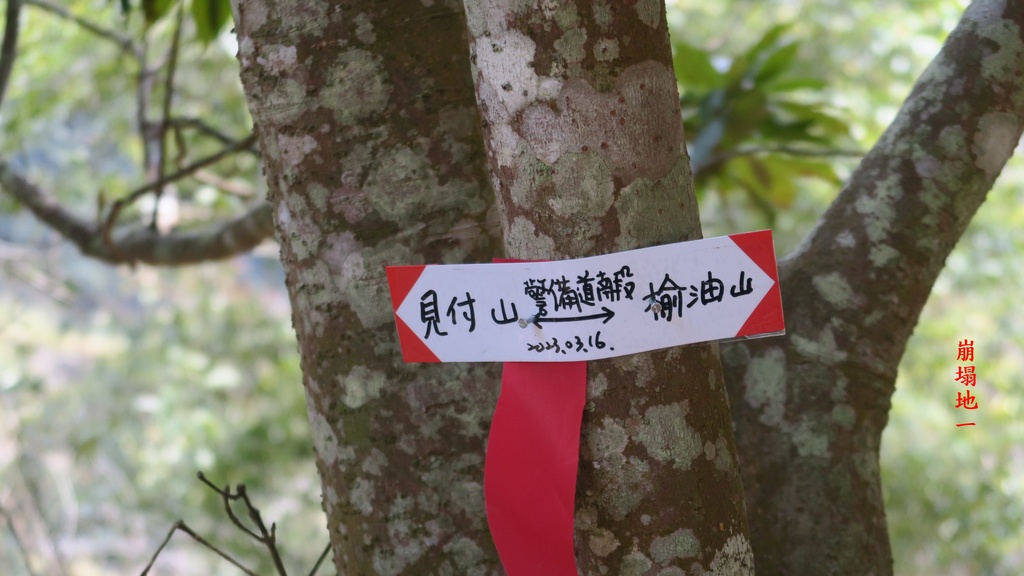 見付山 警備道南段 榆油山
2023.03.16.
崩塌地一